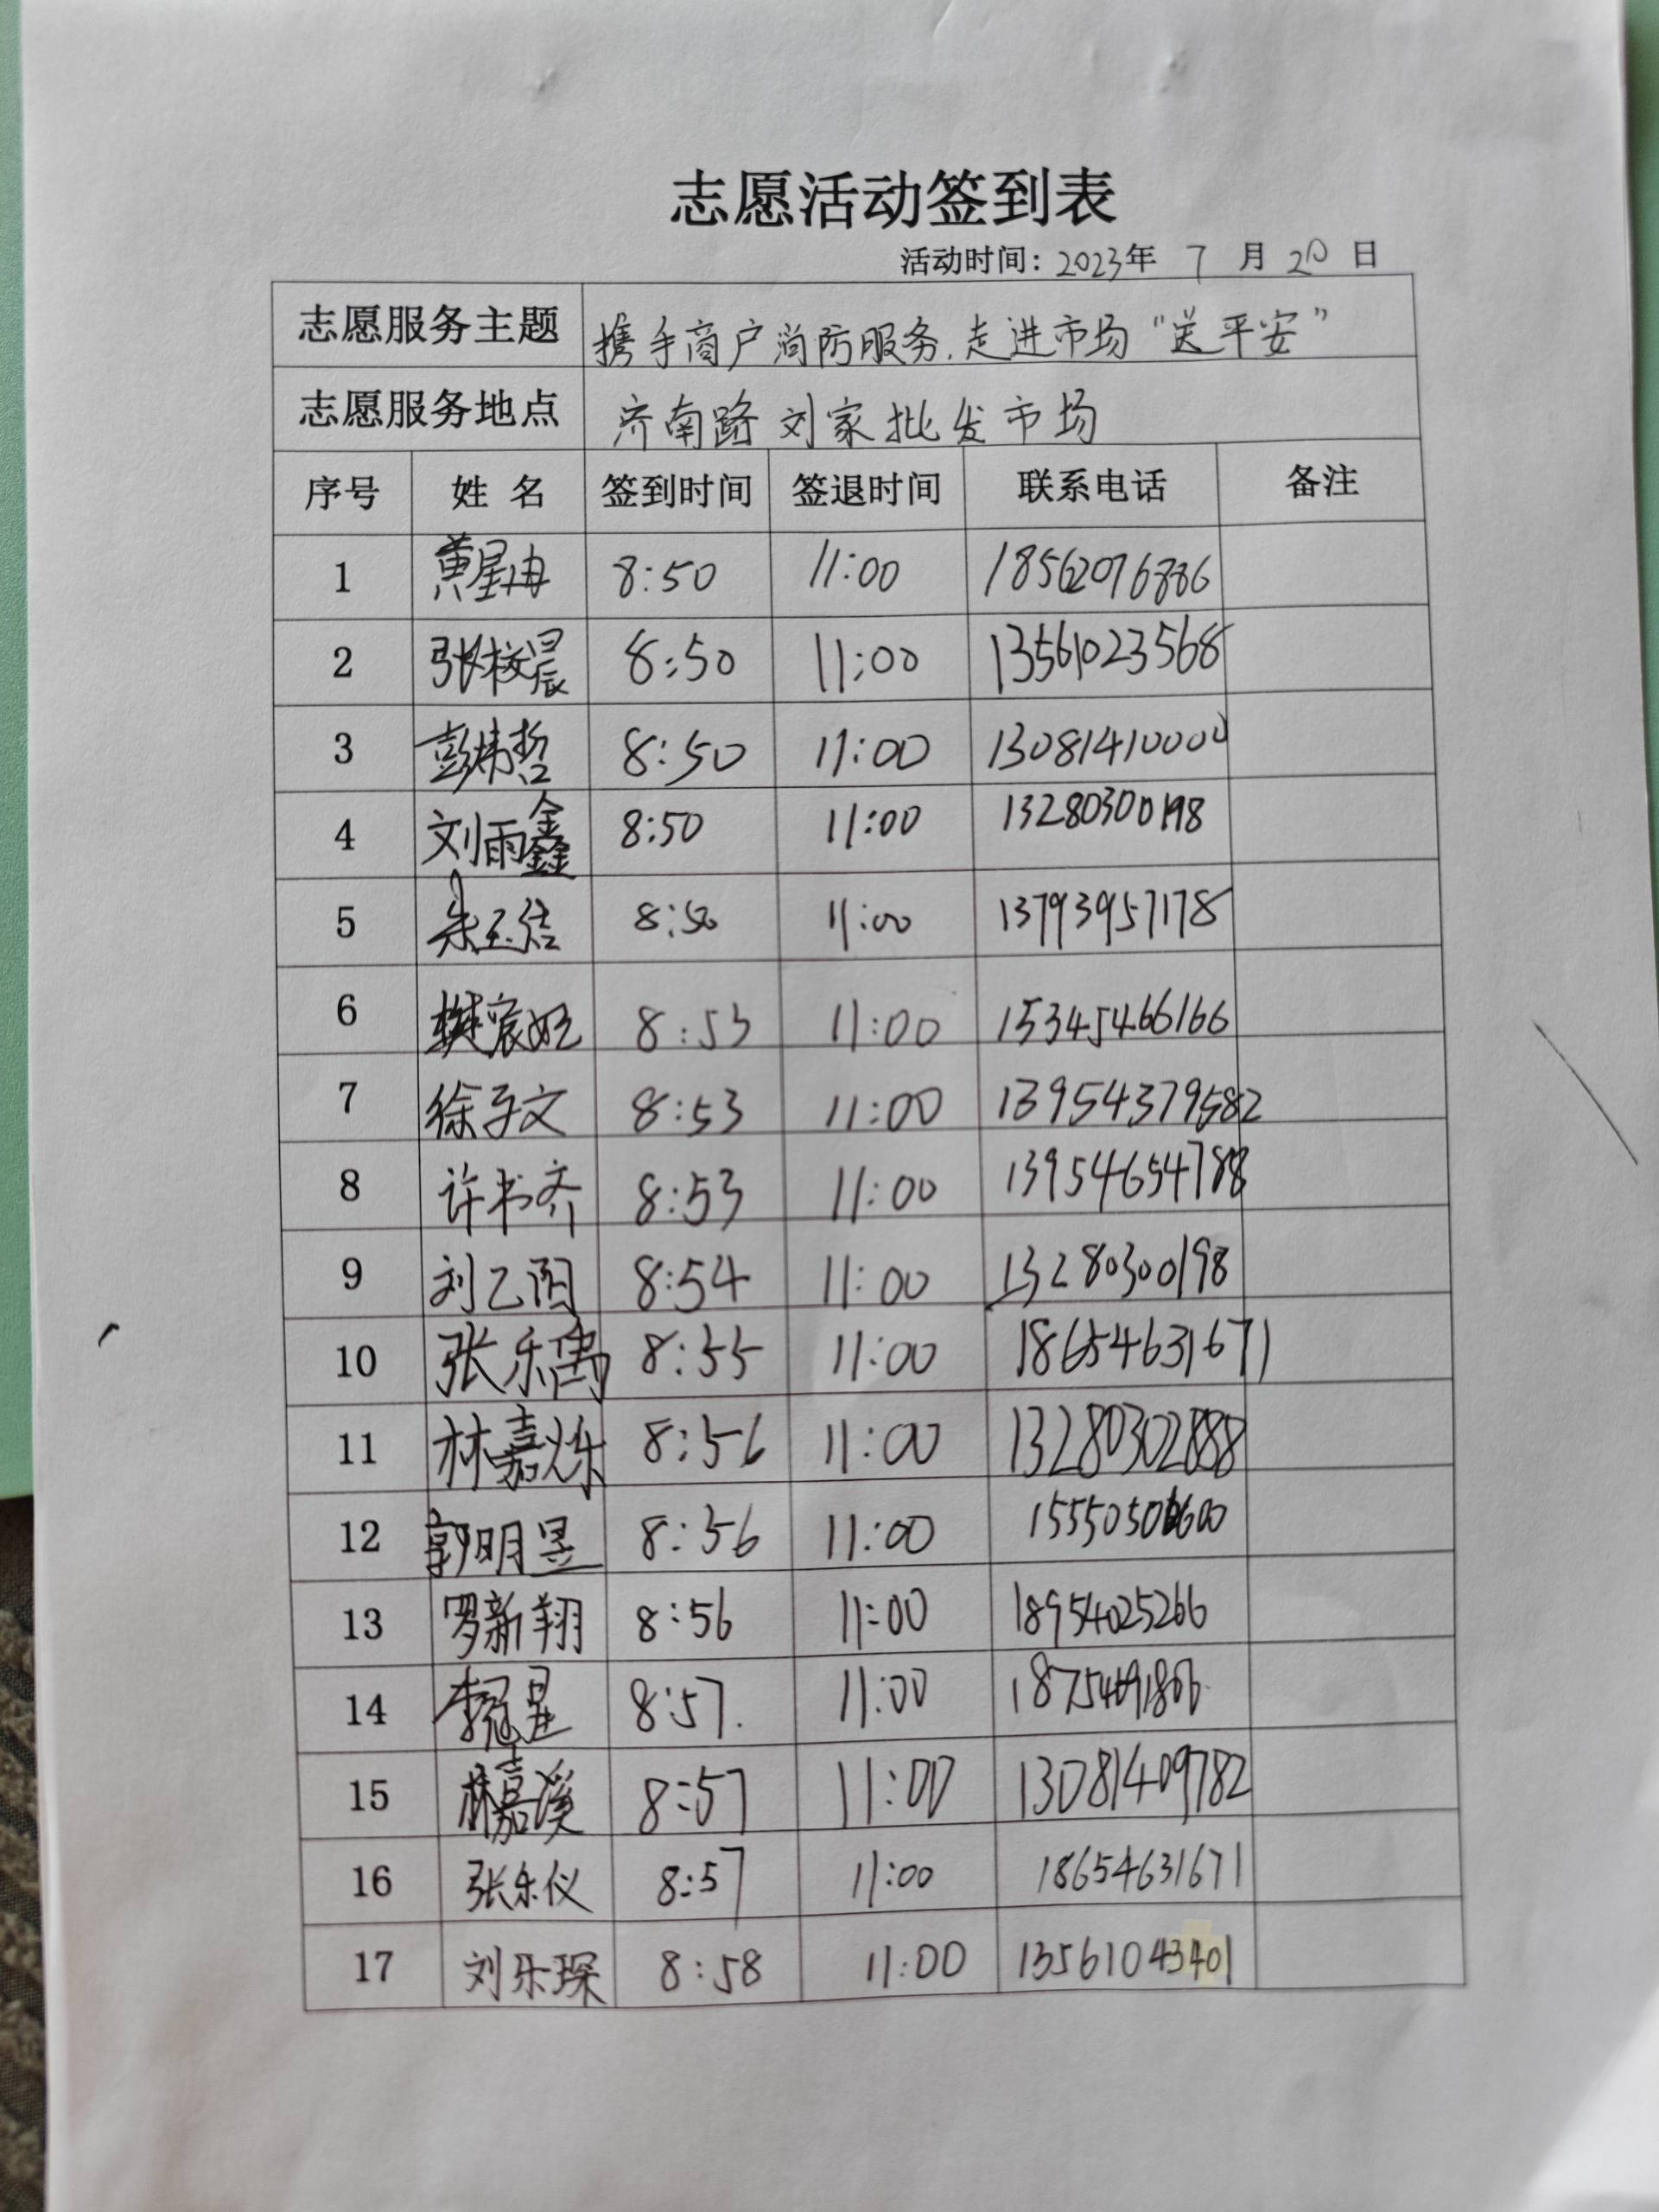 志愿活动签到表
活动时间：2023年 7 月 20 日
志愿服务主题 携手商户消防服务.走进市场“送平安”
志愿服务地点 济南路刘家批发市场
序号 姓名 签到时间 签退时间 联系电话 备注
1 黄星冉 8:50 11:00 18562076886
2 张校晨 8:50 11:00 13561023568
3 彭炜哲 8:50 11:00 13081410000
4 刘雨鑫 8:50 11:00 13280300198
5 8:50 11:00 13793957178
6 8:53 11:00 15345466166
7 徐子文 8:53 11:00 13954379582
8 许书齐 8:53 11:00 13954654788
9 刘乙阳 8:54 11:00 13280300198
10 张乐禹 8:55 11:00 18654631671
11 林嘉烁 8:56 11:00 13280302888
12 郭明昱 8:56 11:00
13 罗新翔 8:56 11:00 18954025266
14 李冠星 8:57. 11:00
15 林嘉溪 8:57 11:00 13081409782
16 张乐仪 8:57 11:00 18654631671
17 刘乐琛 8:58 11:00 13561043401